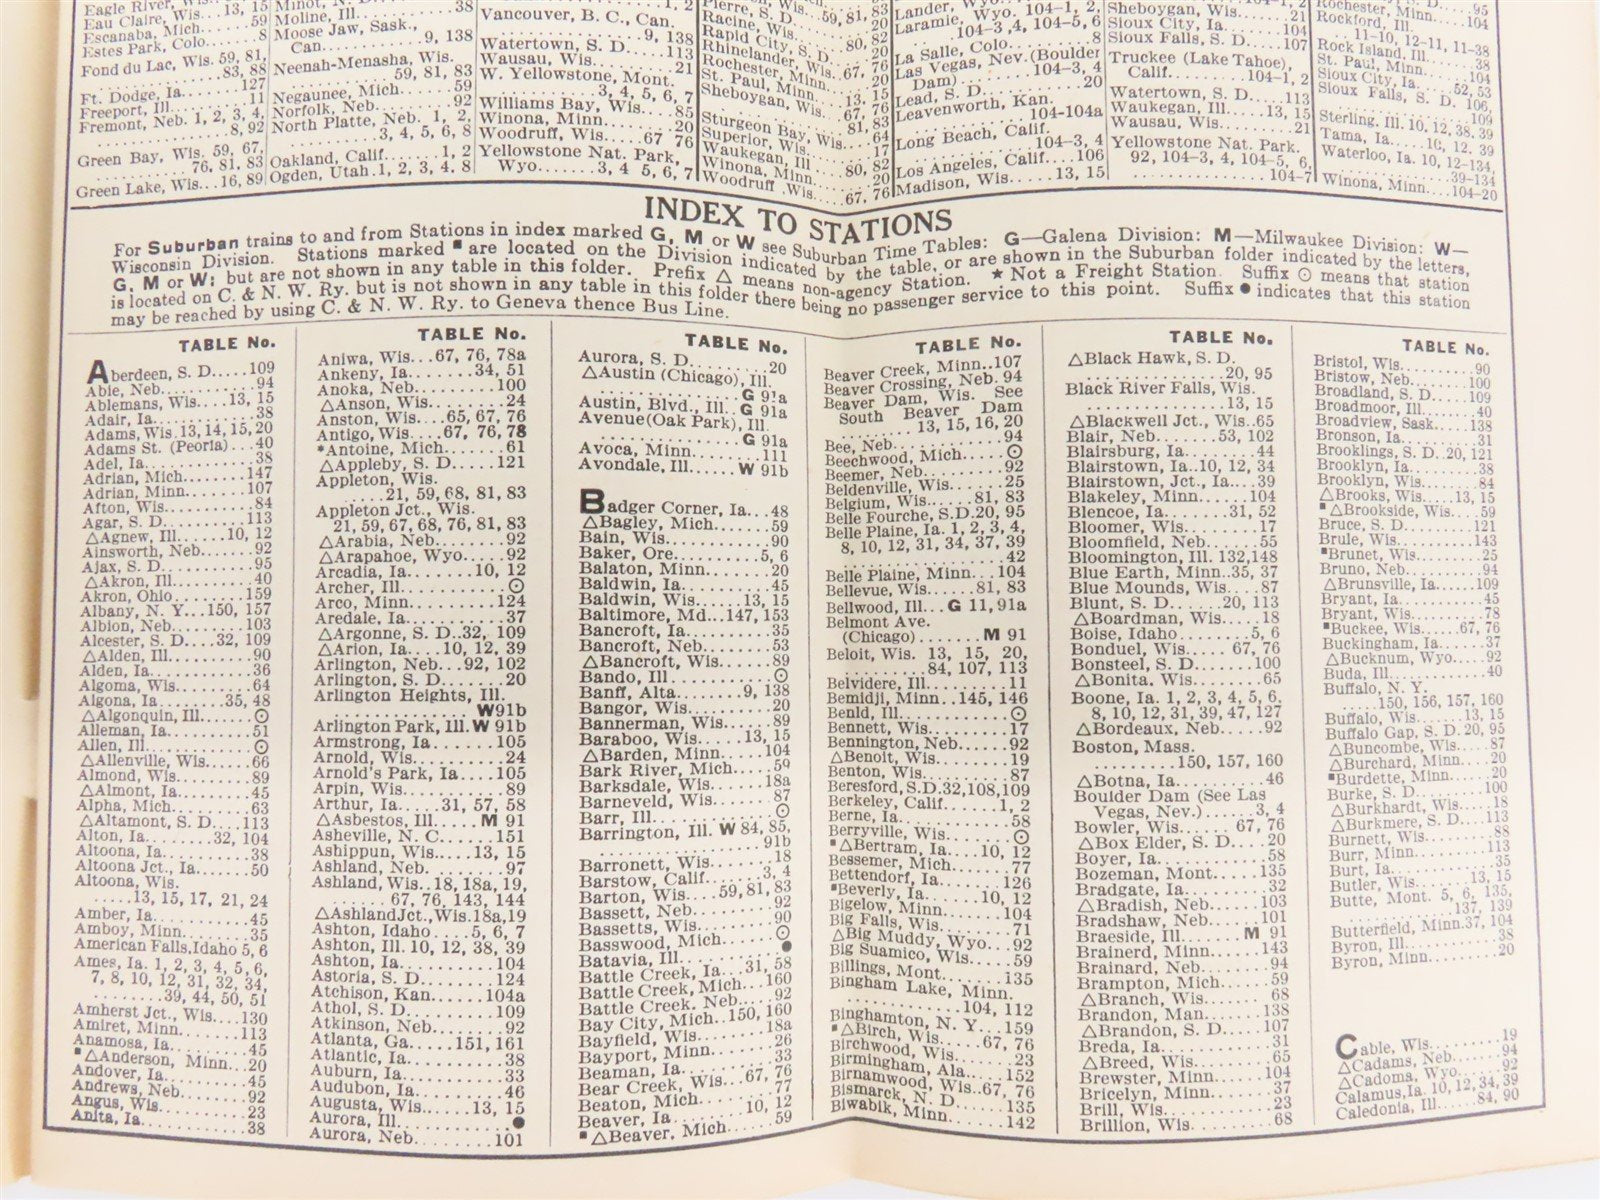 Eagle River, Wis.
Eau Claire, Wis... 13, 15
Escanaba, Mich.......59
Estes Park, Colo.......8
Fond du Lac, Wis. 59, 81,
........83, 88
Ft. Dodge, Ia.......127
Freeport, Ill.......11
Fremont, Neb. 1, 2, 3, 4,
........8, 92
Green Bay, Wis. 59, 67,
........76, 81, 83
Green Lake, Wis...16, 89
Moline, Ill.......38
Moose Jaw, Sask.,
Can.......9, 138
Neenah-Menasha, Wis.
........59, 81, 83
Negaunee, Mich.....59
Norfolk, Neb.......92
North Platte, Neb. 1, 2,
........3, 4, 5, 6, 8
Oakland, Calif.......1, 2
Ogden, Utah.1, 2, 3, 4, 8
Vancouver, B. C., Can.
........9, 138
Watertown, S. D.....113
Wausau, Wis.......21
W. Yellowstone, Mont.
........3, 4, 5, 6, 7
Williams Bay, Wis....85
Winona, Minn.......20
Woodruff, Wis.....67 76
Yellowstone Nat. Park,
Wyo.......3, 4 5, 6, 7
Pierre, S. D.......20
Racine, Wis...59, 81, 83
Rapid City, S. D.
Rhinelander, Wis..67, 76
Rochester, Minn.....20
St. Paul, Minn....13, 15
Sheboygan, Wis.
........81, 83
Sturgeon Bay, Wis....64
Superior, Wis.......17
Waukegan, Ill.....80, 82
Winona, Minn.......20
Woodruff, Wis.....67, 76
Laramie, Wyo. 104-1, 2,
...104-3, 4, 104-5, 6
La Salle, Colo.......8
Las Vegas, Nev. (Boulder
Dam).......104-3, 4
Lead, S. D.......20
Leavenworth, Kan.
........104-104a
Long Beach, Calif.
........104-3, 4
Los Angeles, Calif....106
Madison, Wis.....13, 15
Sheboygan, Wis.....21
Sioux City, Ia.......104
Sioux Falls, S. D....107
Truckee (Lake Tahoe),
Calif.......104-1, 2
Watertown, S. D.....113
Waukegan, Ill.....13, 15
Wausau, Wis.......21
Yellowstone Nat. Park.
92, 104-3, 4, 104-5, 6,
........104-7
Rochester, Minn....104
Rockford, Ill.
...11-10, 12-11, 11-38
Rock Island, Ill.....38
St. Paul, Minn.....104
Sioux City, Ia.....52, 53
Sioux Falls, S. D. 106,
........109
Sterling, Ill. 10, 12, 38, 39
Tama, Ia.....10, 12, 39
Waterloo, Ia. 10, 12-134,
........39-134
Winona, Minn....104-20
INDEX TO STATIONS
For Suburban trains to and from Stations in index marked G, M or W see Suburban Time Tables: G—Galena Division: M—Milwaukee Division: W—
Wisconsin Division. Stations marked ■ are located on the Division indicated by the table, or are shown in the Suburban folder indicated by the letters,
G, M or W; but are not shown in any table in this folder. Prefix △ means non-agency Station. ★ Not a Freight Station. Suffix ⊙ means that station
is located on C. & N. W. Ry. but is not shown in any table in this folder there being no passenger service to this point. Suffix ● indicates that this station
may be reached by using C. & N. W. Ry. to Geneva thence Bus Line.
TABLE No.
Aberdeen, S. D.....109
Able, Neb.......94
Ablemans, Wis....13, 15
Adair, Ia.......38
Adams, Wis.13, 14, 15, 20
Adams St. (Peoria)...40
Adel, Ia.......38
Adrian, Mich.......147
Adrian, Minn.......107
Afton, Wis.......84
Agar, S. D.......113
△Agnew, Ill.....10, 12
Ainsworth, Neb.....92
Ajax, S. D.......95
△Akron, Ill.......40
Akron, Ohio.......159
Albany, N. Y...150, 157
Albion, Neb.......103
Alcester, S. D....32, 109
△Alden, Ill.......90
Alden, Ia.......36
Algoma, Wis.......64
Algona, Ia.......35, 48
△Algonquin, Ill.....⊙
Alleman, Ia.......51
Allen, Ill.......⊙
△Allenville, Wis.....66
Almond, Wis.......89
△Almont, Ia.......45
Alpha, Mich.......63
△Altamont, S. D....113
Alton, Ia.......32, 104
Altoona, Ia.......38
Altoona Jct., Ia.....50
Altoona, Wis.
.....13, 15, 17, 21, 24
Amber, Ia.......45
Amboy, Minn.......35
American Falls,Idaho 5, 6
Ames, Ia. 1, 2, 3, 4, 5, 6,
7, 8, 10, 12, 31, 32, 34,
........39, 44, 50, 51
Amherst Jct., Wis....130
Amiret, Minn.......113
Anamosa, Ia.......45
■△Anderson, Minn...20
Andover, Ia.......45
Andrews, Neb.......92
Angus, Wis.......23
Anita, Ia.......38
TABLE No.
Aniwa, Wis...67, 76, 78a
Ankeny, Ia.......34, 51
Anoka, Neb.......100
△Anson, Wis.......24
Anston, Wis....65, 67, 76
Antigo, Wis....67, 76, 78
★Antoine, Mich.....61
△Appleby, S. D.....121
Appleton, Wis.
.....21, 59, 68, 81, 83
Appleton Jct., Wis.
21, 59, 67, 68, 76, 81, 83
△Arabia, Neb.......92
△Arapahoe, Wyo.....92
Arcadia, Ia.......10, 12
Archer, Ill.......⊙
Arco, Minn.......124
Aredale, Ia.......37
△Argonne, S. D..32, 109
△Arion, Ia....10, 12, 39
Arlington, Neb...92, 102
Arlington, S. D.....20
Arlington Heights, Ill.
........W91b
Arlington Park, Ill.W 91b
Armstrong, Ia.......105
Arnold, Wis.......24
Arnold's Park, Ia....105
Arpin, Wis.......89
Arthur, Ia.....31, 57, 58
△Asbestos, Ill.....M 91
Asheville, N. C.....151
Ashippun, Wis....13, 15
Ashland, Neb.......97
Ashland, Wis..18, 18a, 19,
.......67, 76, 143, 144
△AshlandJct.,Wis.18a,19
Ashton, Idaho....5, 6, 7
Ashton, Ill. 10, 12, 38, 39
Ashton, Ia.......104
Astoria, S. D.......124
Atchison, Kan.....104a
Athol, S. D.......109
Atkinson, Neb.......92
Atlanta, Ga.....151, 161
Atlantic, Ia.......38
Auburn, Ia.......33
Audubon, Ia.......46
Augusta, Wis.....13, 15
Aurora, Ill.......●
Aurora, Neb.......101
TABLE No.
Aurora, S. D.......20
△Austin (Chicago), Ill.
........G 91a
Austin, Blvd., Ill..G 91a
Avenue(Oak Park), Ill.
........G 91a
Avoca, Minn.......111
Avondale, Ill.....W 91b
Badger Corner, Ia...48
△Bagley, Mich.......59
Bain, Wis.......90
Baker, Ore.......5, 6
Balaton, Minn.......20
Baldwin, Ia.......45
Baldwin, Wis.....13, 15
Baltimore, Md...147, 153
Bancroft, Ia.......35
Bancroft, Neb.......53
△Bancroft, Wis.......89
Bando, Ill.......⊙
Banff, Alta.......9, 138
Bangor, Wis.......20
Bannerman, Wis.....89
Baraboo, Wis.....13, 15
△Barden, Minn.....104
Bark River, Mich.....59
Barksdale, Wis.....18a
Barneveld, Wis.......87
Barr, Ill.......⊙
Barrington, Ill. W 84, 85,
........91b
Barronett, Wis.......18
Barstow, Calif.......3, 4
Barton, Wis....59, 81, 83
Bassett, Neb.......92
Bassetts, Wis.......90
Basswood, Mich.....⊙
Batavia, Ill.......●
Battle Creek, Ia...31, 58
Battle Creek, Mich...160
Battle Creek, Neb....92
Bay City, Mich..150, 160
Bayfield, Wis.......18a
Bayport, Minn.......26
Beaman, Ia.......33
Bear Creek, Wis...67, 76
Beaton, Mich.......77
Beaver, Ia.......10, 12
■△Beaver, Mich.....59
TABLE No.
Beaver Creek, Minn..107
Beaver Crossing, Neb. 94
Beaver Dam, Wis. See
South Beaver Dam
......13, 15, 16, 20
Bee, Neb.......94
Beechwood, Mich....⊙
Beemer, Neb.......92
Beldenville, Wis.....25
Belgium, Wis.....81, 83
Belle Fourche, S.D.20, 95
Belle Plaine, Ia. 1, 2, 3, 4,
8, 10, 12, 31, 34, 37, 39
........42
Belle Plaine, Minn...104
Bellevue, Wis.....81, 83
Bellwood, Ill...G 11,91a
Belmont Ave.
(Chicago).......M 91
Beloit, Wis. 13, 15, 20,
......84, 107, 113
Belvidere, Ill.......11
Bemidji, Minn..145, 146
Benld, Ill.......⊙
Bennett, Wis.......17
Bennington, Neb.....92
△Benoit, Wis.......19
Benton, Wis.......87
Beresford, S.D.32,108,109
Berkeley, Calif.....1, 2
Berne, Ia.......58
Berryville, Wis.....⊙
■△Bertram, Ia....10, 12
Bessemer, Mich.....77
Bettendorf, Ia.....126
■Beverly, Ia.....10, 12
Bigelow, Minn.....104
Big Falls, Wis.......71
△Big Muddy, Wyo...92
Big Suamico, Wis....59
Billings, Mont.....135
Bingham Lake, Minn.
........104, 112
Binghamton, N. Y...159
■△Birch, Wis.....67, 76
Birchwood, Wis.....23
Birmingham, Ala....152
Birnamwood, Wis..67, 76
Bismarck, N. D.....135
Biwabik, Minn.....142
TABLE No.
△Black Hawk, S. D.
........20, 95
Black River Falls, Wis.
........13, 15
△Blackwell Jct., Wis..65
Blair, Neb.....53, 102
Blairsburg, Ia.......44
Blairstown, Ia..10, 12, 34
Blairstown, Jct., Ia...39
Blakeley, Minn.....104
Blencoe, Ia.....31, 52
Bloomer, Wis.......17
Bloomfield, Neb.....55
Bloomington, Ill. 132,148
Blue Earth, Minn..35, 37
Blue Mounds, Wis....87
Blunt, S. D.....20, 113
△Boardman, Wis.....18
Boise, Idaho.......5, 6
Bonduel, Wis.....67, 76
Bonsteel, S. D.....100
△Bonita, Wis.......65
Boone, Ia. 1, 2, 3, 4, 5, 6,
8, 10, 12, 31, 39, 47, 127
△Bordeaux, Neb.....92
Boston, Mass.
.......150, 157, 160
△Botna, Ia.......46
Boulder Dam (See Las
Vegas, Nev.)....3, 4
Bowler, Wis.....67, 76
△Box Elder, S. D....20
Boyer, Ia.......58
Bozeman, Mont.....135
Bradgate, Ia.......32
△Bradish, Neb.....103
Bradshaw, Neb.....101
Braeside, Ill.....M 91
Brainerd, Minn.....143
Brainard, Neb.......94
Brampton, Mich.....59
△Branch, Wis.....68
Brandon, Man.....138
△Brandon, S. D.....107
Breda, Ia.......31
△Breed, Wis.......65
Brewster, Minn.....104
Bricelyn, Minn.....37
Brill, Wis.......23
Brillion, Wis.......68
TABLE No.
Bristol, Wis.......90
Bristow, Neb.......100
Broadland, S. D.....109
Broadmoor, Ill.......40
Broadview, Sask.....138
Bronson, Ia.......31
Brookings, S. D..20, 121
Brooklyn, Ia.......38
Brooklyn, Wis.......84
△Brooks, Wis.....13, 15
■△Brookside, Wis....59
Bruce, S. D.......121
Brule, Wis.......143
■Brunet, Wis.......25
Bruno, Neb.......94
△Brunsville, Ia.....109
Bryant, Ia.......45
Bryant, Wis.......78
■Buckee, Wis.....67, 76
Buckingham, Ia.....37
△Bucknum, Wyo.....92
Buda, Ill.......40
Buffalo, N. Y.
.....150, 156, 157, 160
Buffalo, Wis.....13, 15
Buffalo Gap, S. D. 20, 95
△Buncombe, Wis.....87
△Burchard, Minn....20
■Burdette, Minn.....20
Burke, S. D.......100
△Burkhardt, Wis.....18
△Burkmere, S. D....113
Burnett, Wis.......88
Burr, Minn.......113
Burt, Ia.......35
Butler, Wis.....13, 15
Butte, Mont. 5, 6, 135,
........137, 139
Butterfield, Minn.37, 104
Byron, Ill.......38
Byron, Minn.......20
Cable, Wis.......19
△Cadams, Neb.......94
△Cadoma, Wyo.....92
Calamus, Ia. 10, 12, 34, 39
Caledonia, Ill.....84, 90